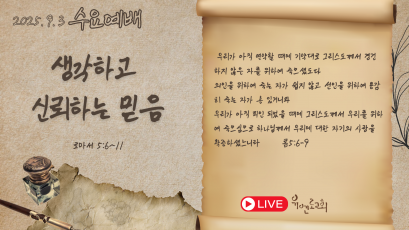 2025.9.3 수요예배
생각하고
신뢰하는 믿음
로마서 5:6-11
우리가 아직 연약할 때에 기약대로 그리스도께서 경건
하지 않은 자를 위하여 죽으셨도다
의인을 위하여 죽는 자가 쉽지 않고 선인을 위하여 용감
히 죽는 자가 혹 있거니와
우리가 아직 죄인 되었을 때에 그리스도께서 우리를 위하
여 죽으심으로 하나님께서 우리에 대한 자기의 사랑을
확증하셨느니라 롬5:6-9
LIVE